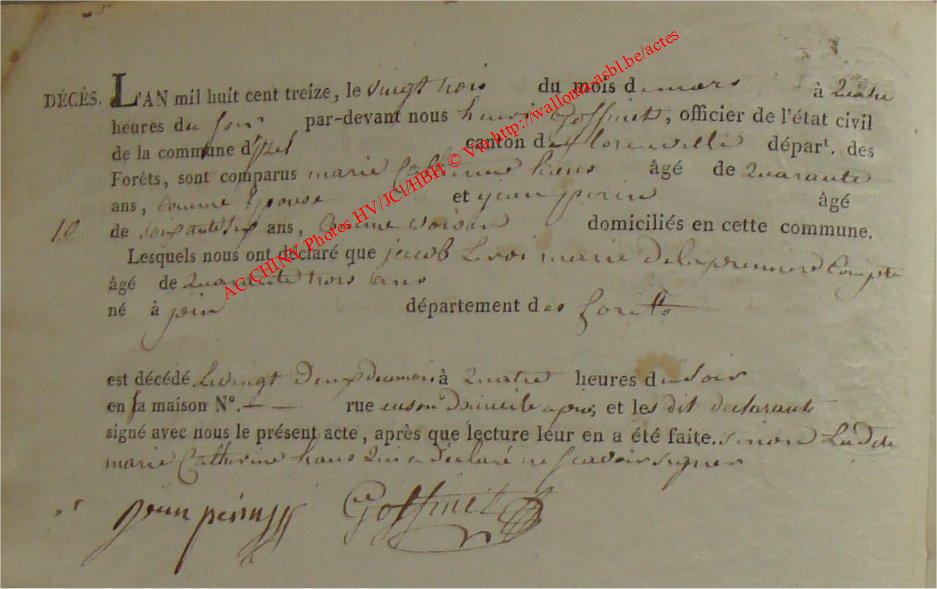 DÉCÈS. L'AN mil huit cent treize, le vingt trois du mois de mars à quatre
heures du soir par-devant nous henri Goffinet, officier de l'état civil
de la commune d'izel canton de florenville départ. des
Forêts, sont comparus marie Catherine hans âgé de quarante
ans, comme Epouse et jean pirin âgé
10 de soixante six ans, comme voisin domiciliés en cette commune.
Lesquels nous ont déclaré que jacob Leroi marié de la premiere Compte
âgé de quarante trois ans
né à département des forêts
est décédé le vingt deux du mois à quatre heures du soir
en sa maison N°. — rue en son domicile a et les dit declarants
signé avec nous le présent acte, après que lecture leur en a été faite. sinon Ladite
marie Catherine hans qui a declaré ne scavoir signer
jean pirin Goffinet
AC CHINY Photos HV/JCl/HBH © Via http://wallonia-asbl.be/actes